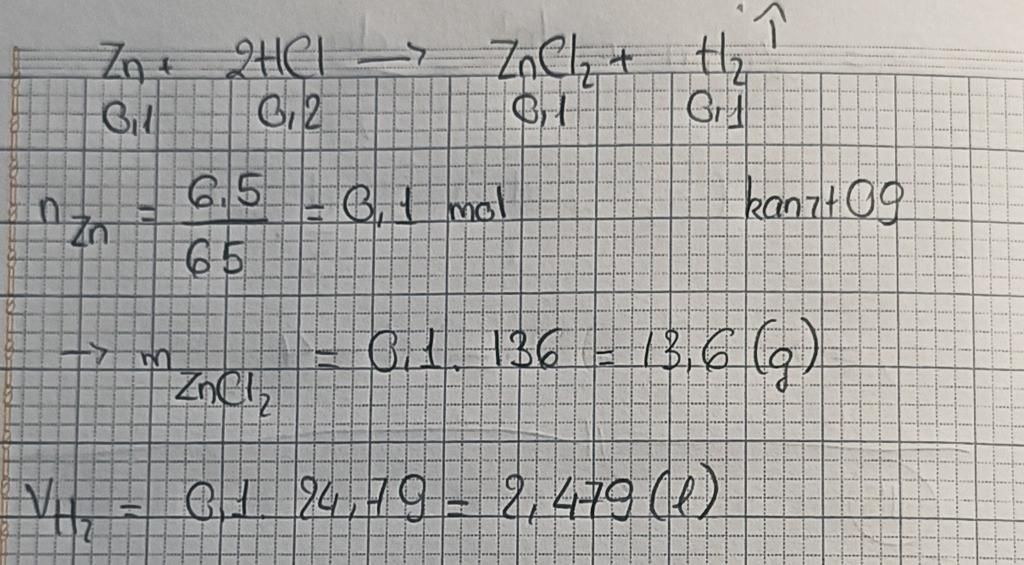 Zn + 2HCl → ZnCl₂ + H₂ ↑
0,1 0,2 0,1 0,1
n Zn = 6.5 / 65 = 0,1 mol kanzt09
→ m ZnCl₂ = 0,1. 136 = 13,6 (g)
V H₂ = 0,1. 24,79 = 2,479 (l)